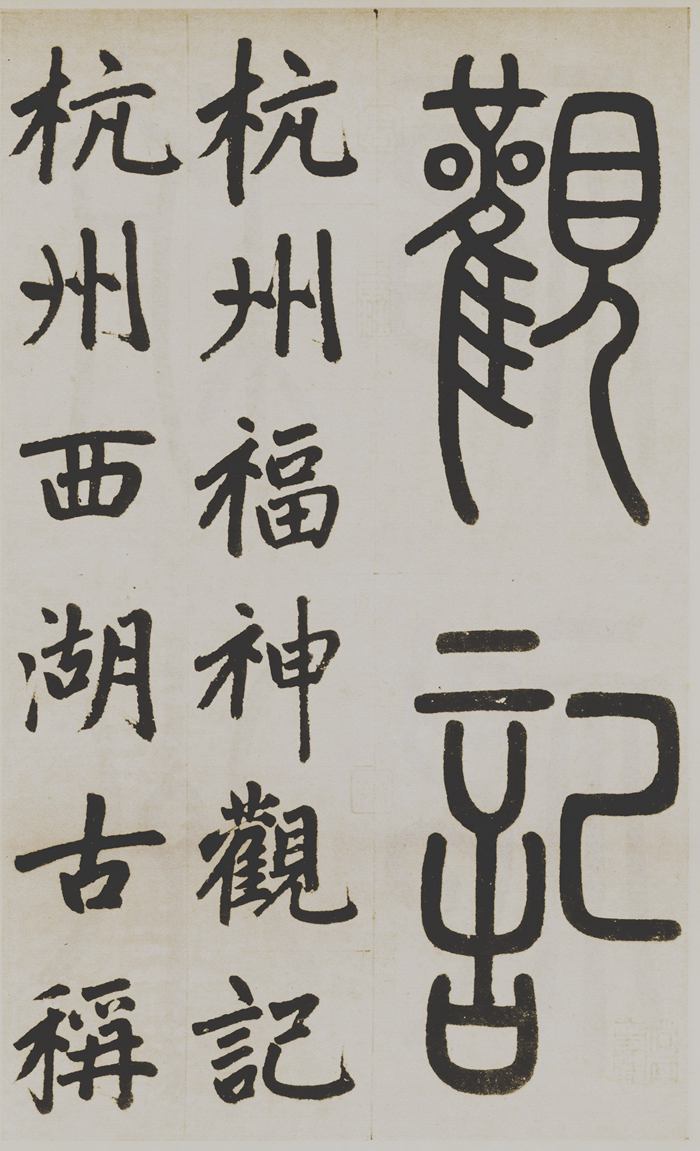 觀記
杭州福神觀記
杭州西湖古稱